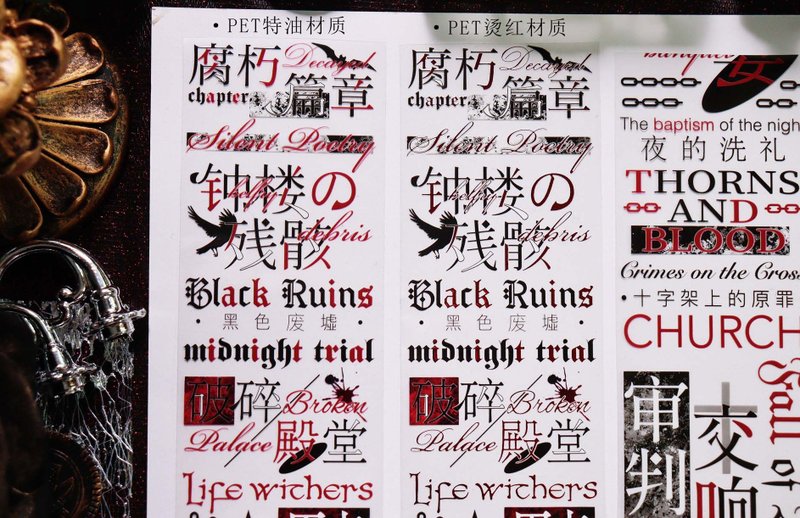 ·PET特油材质
腐朽
Decayed
chapter
篇章
Silent Poetry
钟楼の
belfry
残骸
debris
Black Ruins
·黑色废墟·
midnight trial
破碎
Broken
Palace
殿堂
Life withers
·PET烫红材质
腐朽
Decayed
chapter
篇章
Silent Poetry
钟楼の
belfry
残骸
debris
Black Ruins
·黑色废墟·
midnight trial
破碎
Broken
Palace
殿堂
Life withers
banquet
宴
The baptism of the nigh
夜的洗礼
THORNS
AND
BLOOD
Crimes on the Cross
·十字架上的原罪
CHURCH
审判
交响
Fall of